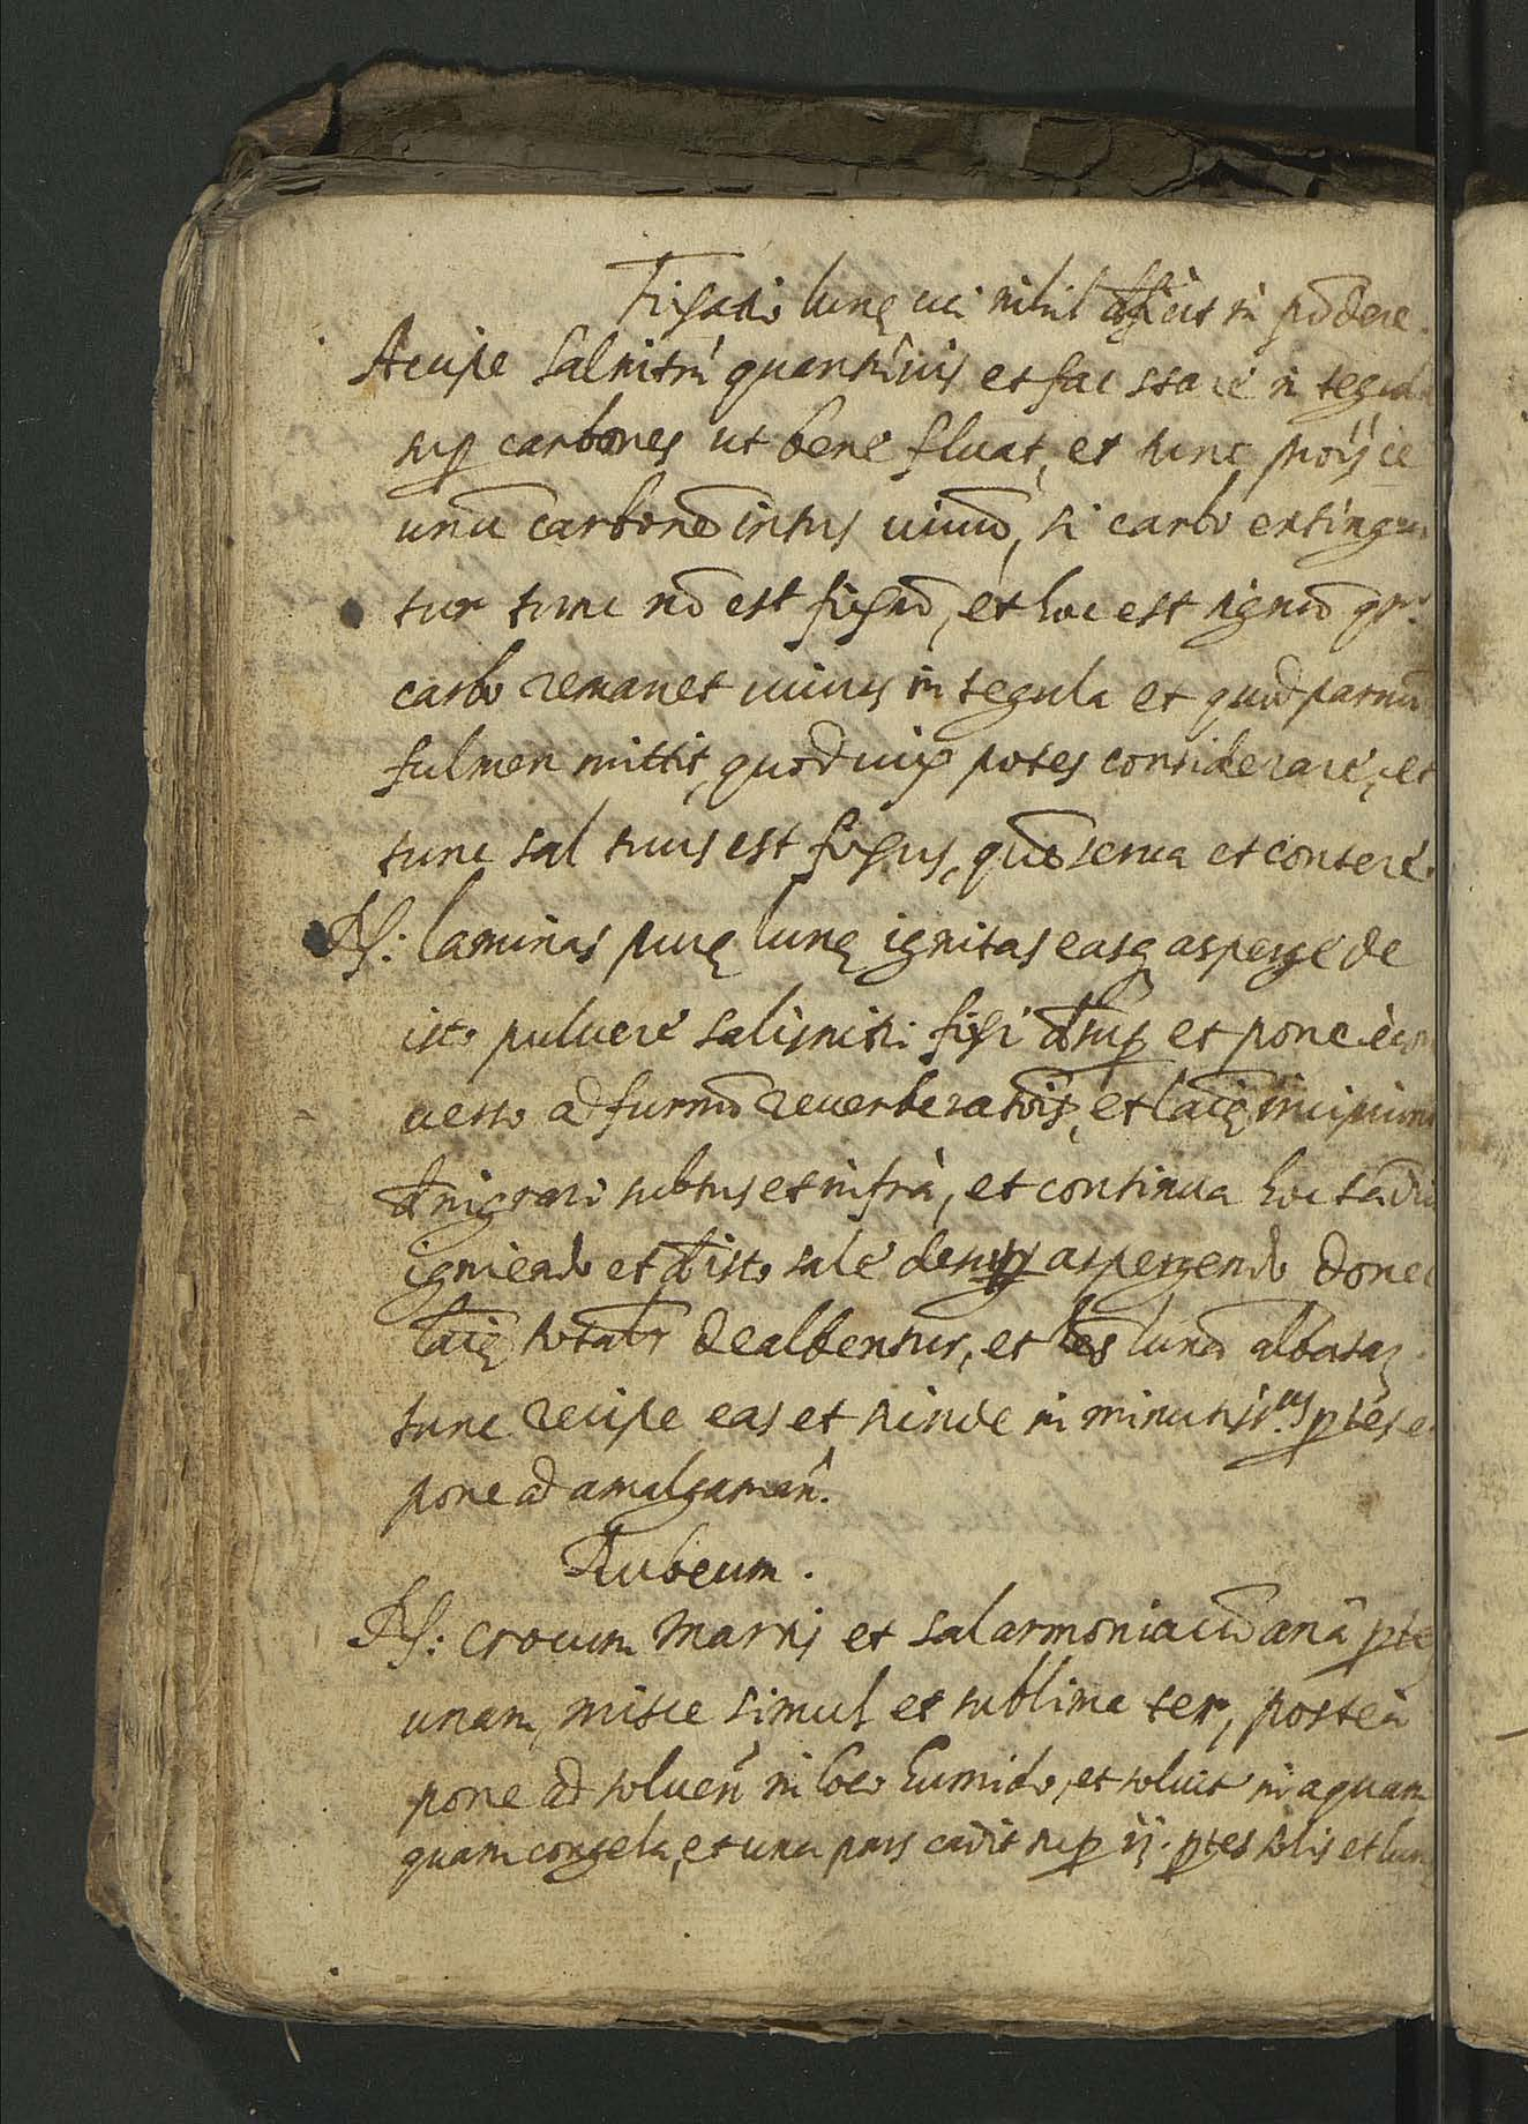 Fixatio lunę cui nihil dficit in põdere.
Accipe salnitrũ quantũuis et fac stare in tegul
sup carbones ut bene fluat, et tunc proijce
unũ carbonẽ intus uiuũ, si carbo extingui
tur tunc nõ est fixũ, et hoc est signũ
carbo remanet uiuus in tegula et quod paruũ
fulmen mittit, quod uix potes considerare, et
tunc sal tuus est fixus, quẽ serua et contere.
R: laminas purę lunę ignitas easq asperge de
isto pulvere salisnitri fixi dsup et pone
uerso ad furnũ reuerberatõis, et laĩę incipiunt
dnigrari subtus et infrà, et continua hoc tãdiu
igniendo et disto sale desup aspergendo donec
laĩę totalr dealbentur, et hẽs lunã albatã
tunc recipe eas et scinde in minutiss.as ptes et
pone ad amalgamãn.
Rubeum.
R: crocum Martis et salarmoniacũ anã pte
unam, misce simul et sublima ter, posteà
pone ad soluen in loco humido, et soluit in aquam
quam congela, et una pars cadit sup ij. ptes solis et lunę